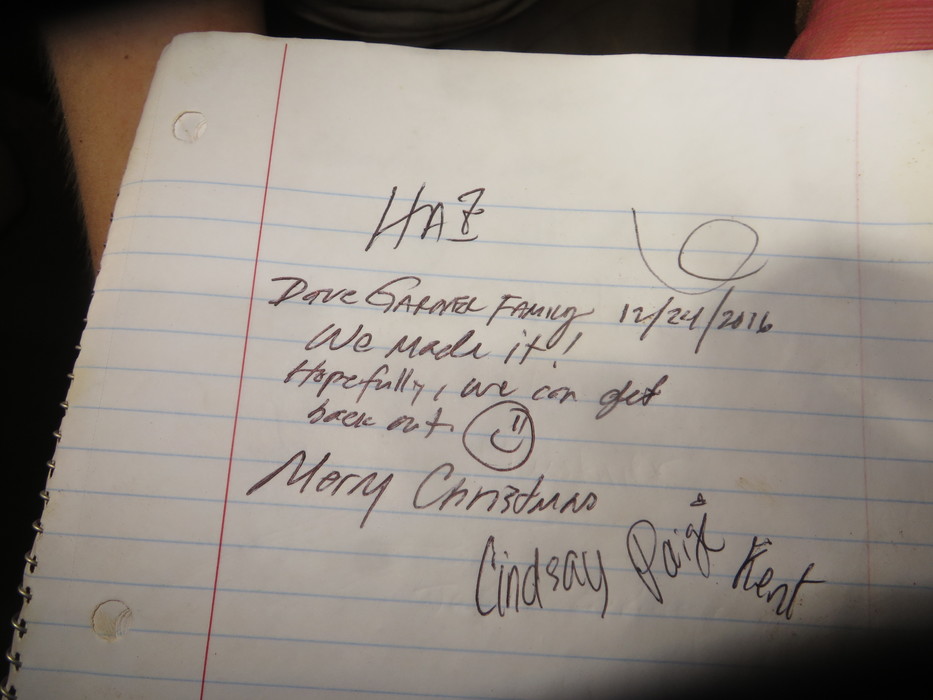 HAZ
Dave GARNER FAMILY 12/24/2016
We made it!
Hopefully, we can get
back out.
Merry Christmas
Lindsay Paige Kent